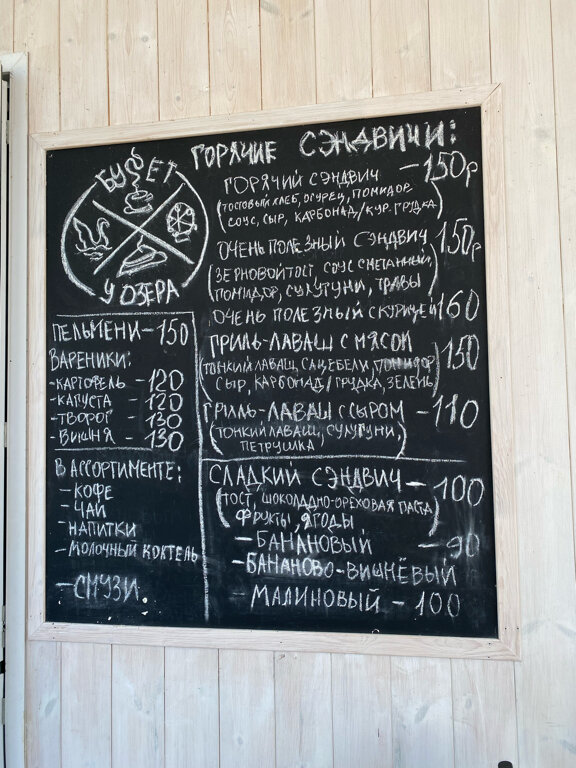 БУФЕТ
У ОЗЕРА
ПЕЛЬМЕНИ-150
ВАРЕНИКИ:
-КАРТОФЕЛЬ -120
-КАПУСТА -120
-ТВОРОГ -130
-ВИШНЯ -130
В АССОРТИМЕНТЕ:
-КОФЕ
-ЧАЙ
-НАПИТКИ
-МОЛОЧНЫЙ КОКТЕЛЬ
-СМУЗИ
ГОРЯЧИЕ СЭНДВИЧИ:
ГОРЯЧИЙ СЭНДВИЧ -150р
(ТОСТОВЫЙ ХЛЕБ, ОГУРЕЦ, ПОМИДОР
СОУС, СЫР, КАРБОНАД/КУР. ГРУДКА)
ОЧЕНЬ ПОЛЕЗНЫЙ СЭНДВИЧ 150р
(ЗЕРНОВОЙ ТОСТ, СОУС СМЕТАННЫЙ,
ПОМИДОР, СУЛУГУНИ, ТРАВЫ)
ОЧЕНЬ ПОЛЕЗНЫЙ С КУРИЦЕЙ 160
ГРИЛЬ-ЛАВАШ С МЯСОМ 150
(ТОНКИЙ ЛАВАШ, САЦЕБЕЛИ, ПОМИДОР
СЫР, КАРБОНАД/ГРУДКА, ЗЕЛЕНЬ)
ГРИЛЬ-ЛАВАШ С СЫРОМ -110
(ТОНКИЙ ЛАВАШ, СУЛУГУНИ,
ПЕТРУШКА)
СЛАДКИЙ СЭНДВИЧ -100
(ТОСТ, ШОКОЛАДНО-ОРЕХОВАЯ ПАСТА
ФРУКТЫ, ЯГОДЫ)
-БАНАНОВЫЙ -90
-БАНАНОВО-ВИШНЁВЫЙ
-МАЛИНОВЫЙ -100